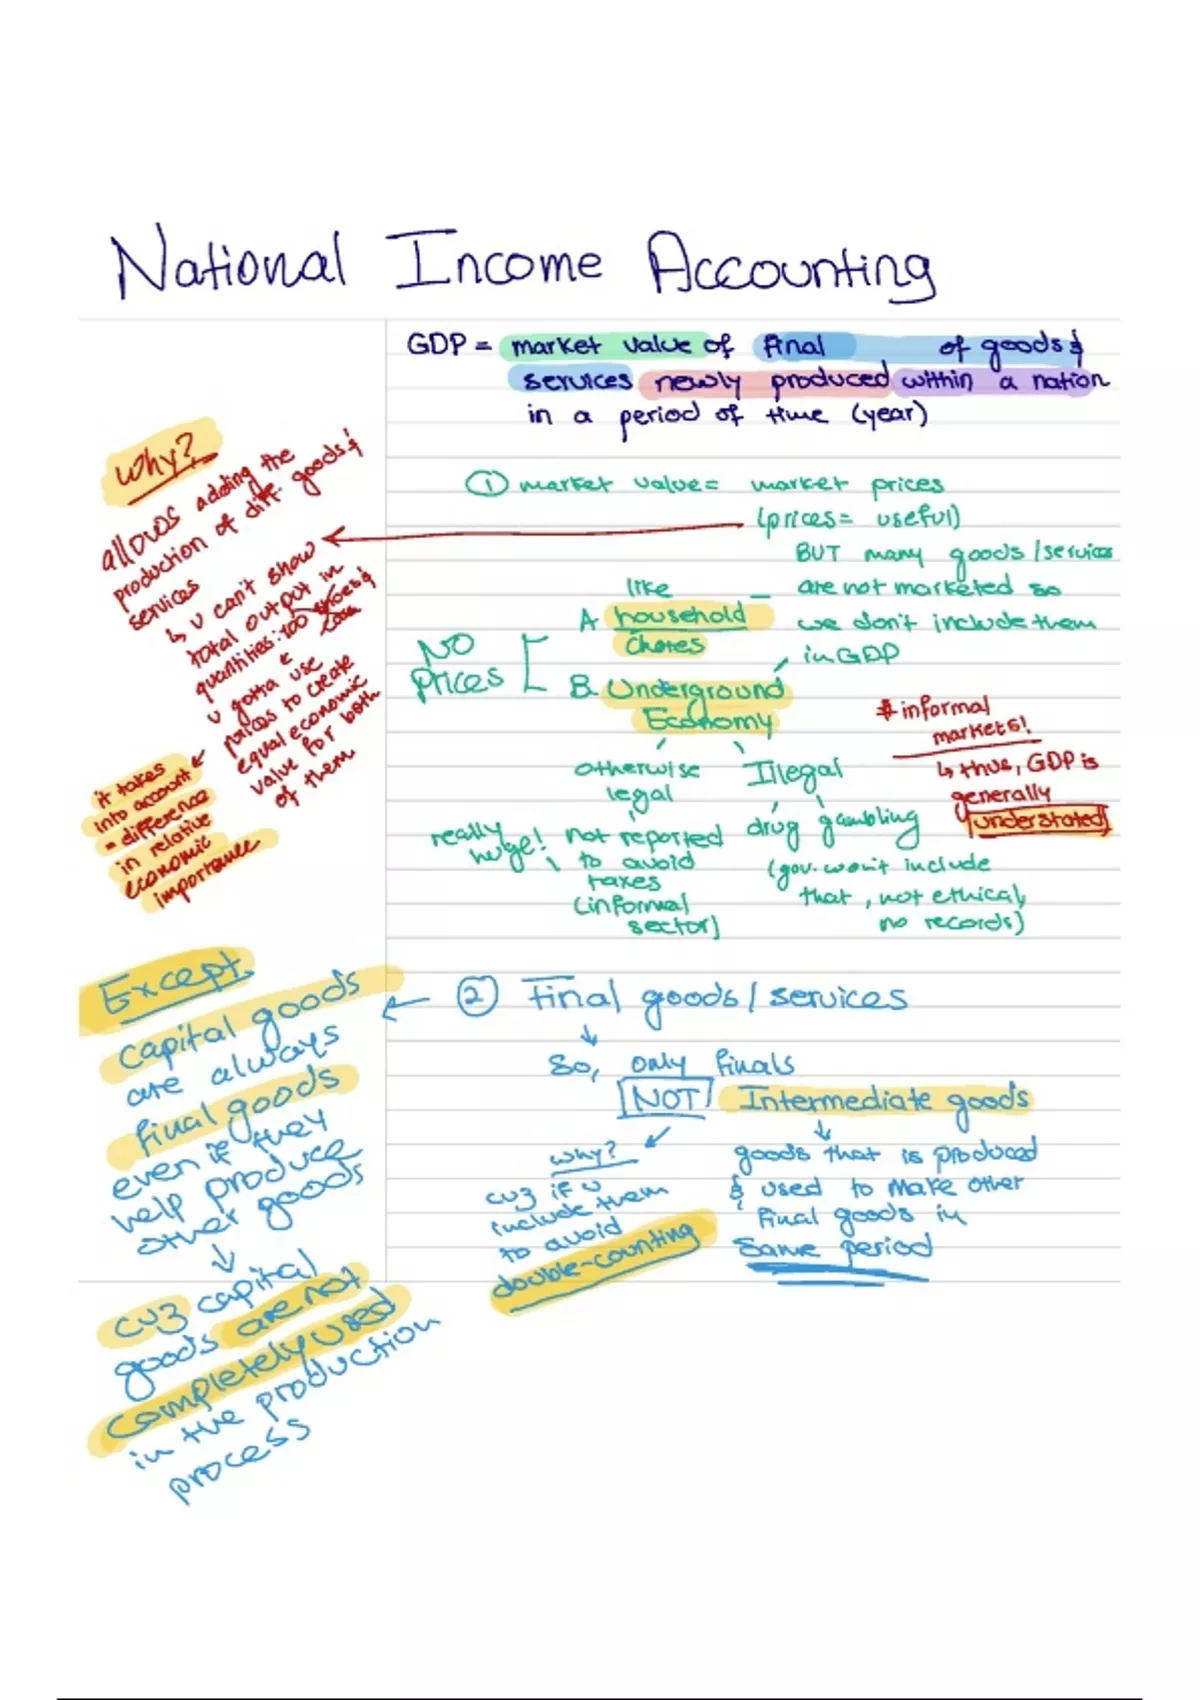 National Income Accounting
GDP = market value of final of goods &
services newly produced within a nation
in a period of time (year)
① market value = market prices
(prices = useful)
BUT many goods / services
are not marketed so
we don't include them
in GDP
like
A household
chores
NO
prices
B. Underground
Economy
otherwise
legal
not reported
to avoid
taxes
(informal
sector)
really
huge!
Illegal
drug gambling
(gov. won't include
that, not ethical,
no records)
informal
markets!
↳ thus, GDP is
generally
understated
Why?
allows adding the
production of diff goods &
services
↳ u can't show
total output in
quantities: 100 shoes &
u gotta use
prices to create
equal economic
value for both
of them
it takes
into account
= difference
in relative
economic
importance
② Final goods / services
So, only finals
NOT Intermediate goods
goods that is produced
& used to make other
final goods in
same period
why?
cuz if u
include them
to avoid
double-counting
Except
capital goods
are always
final goods
even if they
help produce
other goods
cuz capital
goods are not
completely used
in the production
process